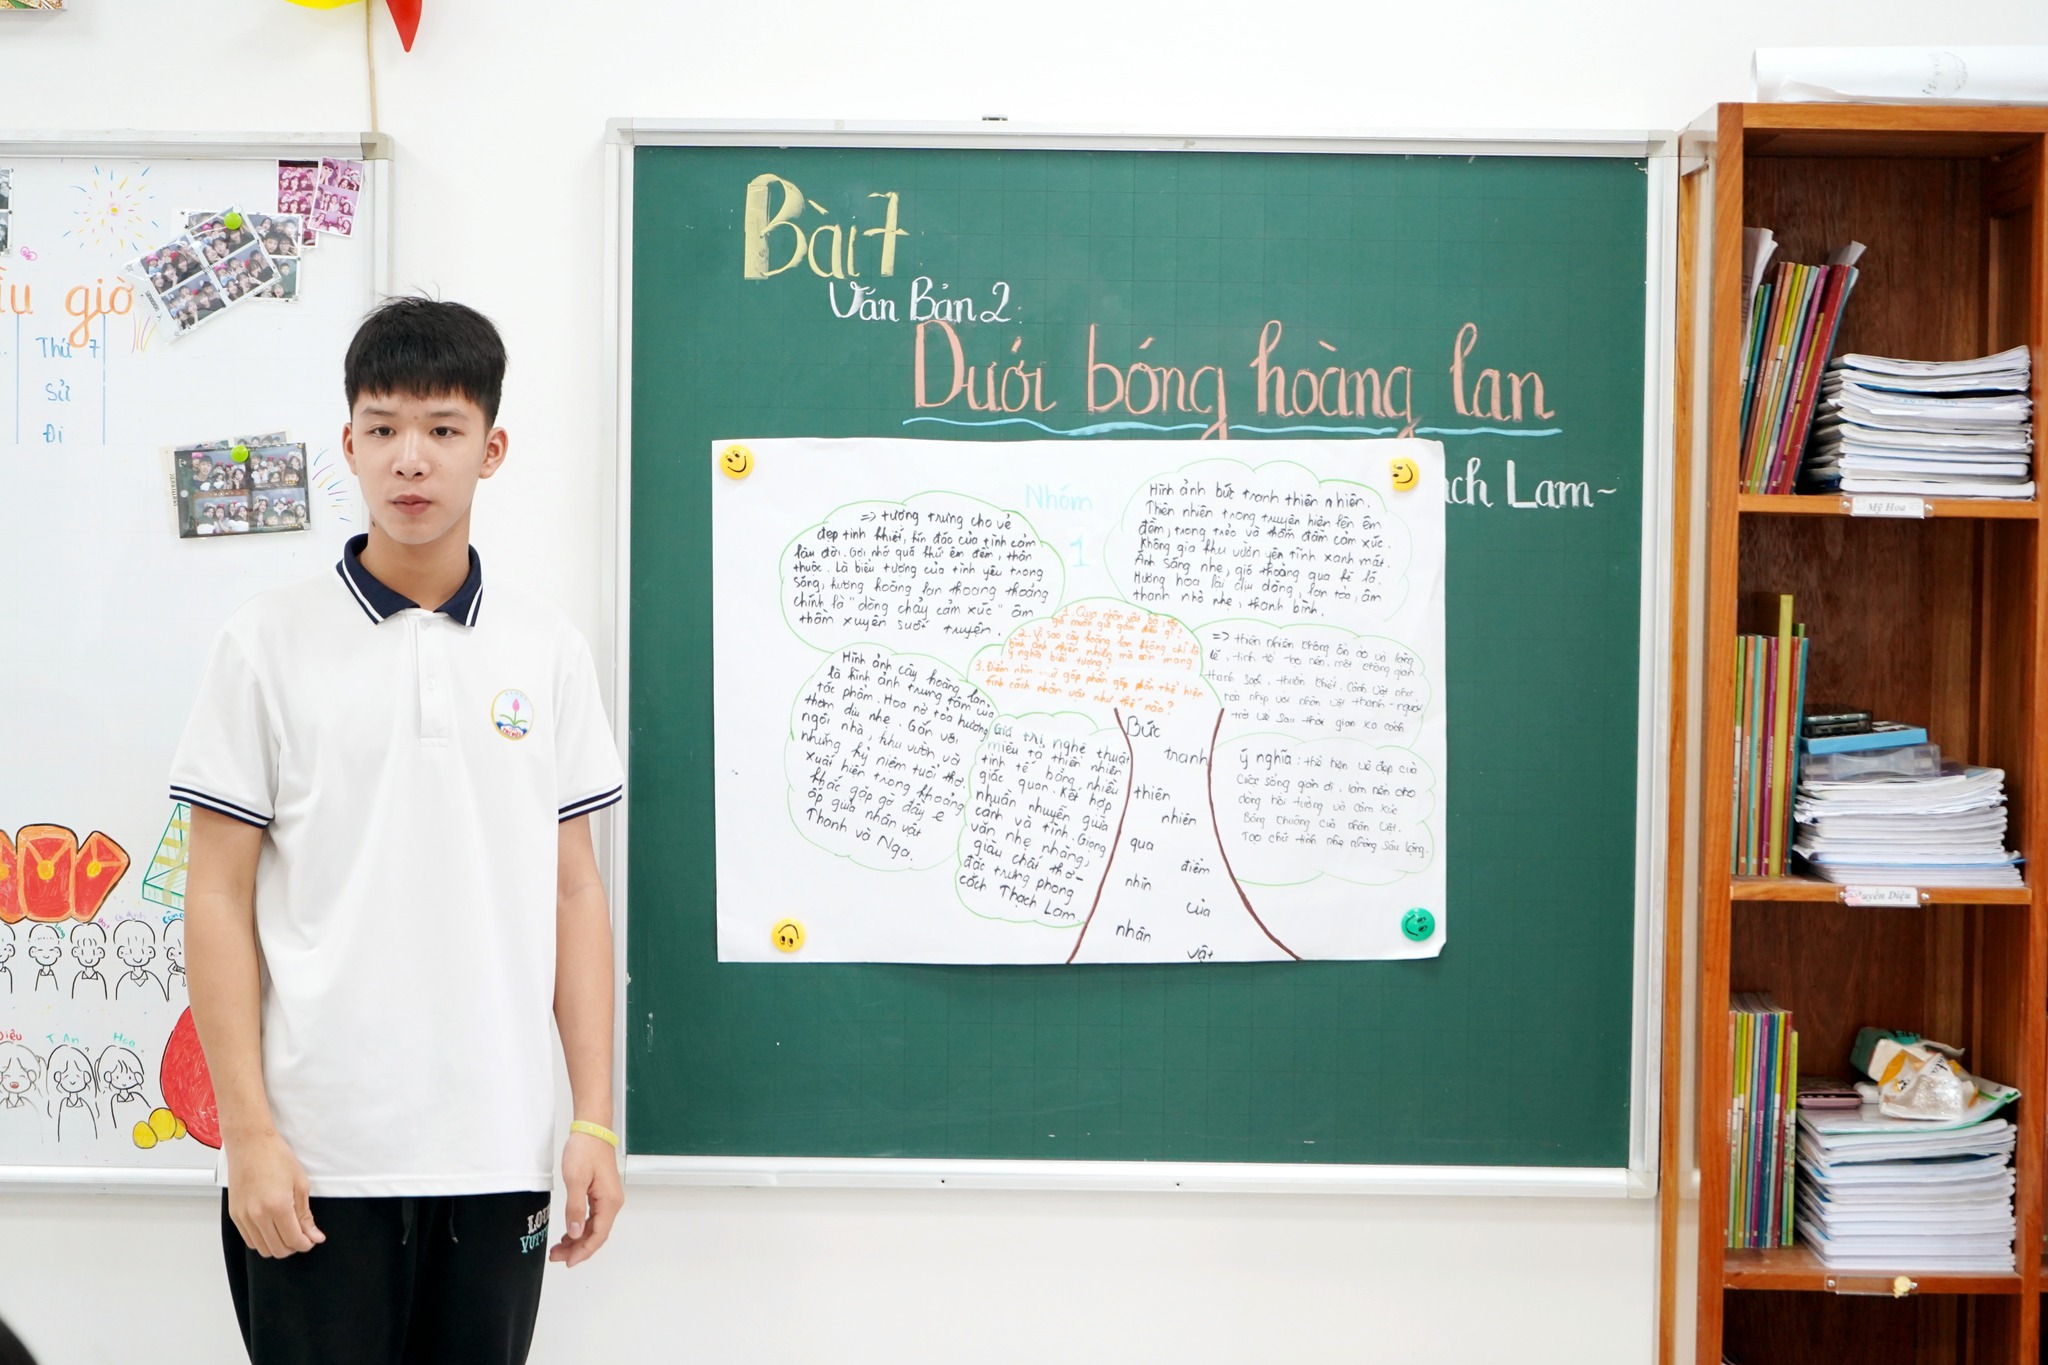 ầu giờ
Thứ 7
Sử
Đi
Diệu
T An
Hoa
Bài 7
Văn Bản 2:
Dưới bóng hoàng lan
ạch Lam~
Nhóm
1
=> tượng trưng cho vẻ
đẹp tinh khiết, kín đáo của tình cảm
lâu đời. Gợi nhớ quá khứ êm đềm, thân
thuộc. Là biểu tượng của tình yêu trong
sáng, hương hoàng lan thoang thoảng
chính là "dòng chảy cảm xúc" âm
thầm xuyên suốt truyện.
Hình ảnh bức tranh thiên nhiên.
Thiên nhiên trong truyện hiện lên êm
đềm, trong trẻo và thấm đẫm cảm xúc.
Không gia khu vườn yên tĩnh xanh mát.
Ánh sáng nhẹ, gió thoảng qua kẽ lá.
Hương hoa lài dịu dàng, lan tỏa, âm
thanh nhỏ nhẹ, thanh bình.
2. Vì sao cây hoàng lan không chỉ là
hình ảnh thiên nhiên mà còn mang
ý nghĩa biểu tượng?
3. Điểm nhìn trữ góp phần góp phần thể hiện
tính cách nhân vật như thế nào?
=> thiên nhiên không ồn ào và lặng
lẽ, tinh tế tạo nên một không gian
thanh sạch, thuần khiết. Cảnh vật như
trở về sau thời gian xa cách
Hình ảnh cây hoàng lan.
là hình ảnh trung tâm của
tác phẩm. Hoa nở tỏa hương
thơm dịu nhẹ. Gắn với
ngôi nhà, khu vườn, và
những kỷ niệm tuổi thơ.
xuất hiện trong khoảng
khắc gặp gỡ đầy e
ấp giữa nhân vật
Thanh và Nga.
Giá trị nghệ thuật
miêu tả thiên nhiên
tinh tế bằng nhiều
giác quan. Kết hợp
nhuần nhuyễn giữa
cảnh và tình. Giọng
văn nhẹ nhàng,
giàu chất thơ-
đặc trưng phong
cách Thạch Lam.
ý nghĩa: thể hiện vẻ đẹp của
Cuộc sống giản dị, làm nền cho
dòng hồi tưởng và cảm xúc
Bâng khuâng của nhân vật.
Tạo chất tình nhẹ nhàng sâu lắng.
Bức
tranh
thiên
nhiên
qua
điểm
nhìn
của
nhân
vật
Mỹ Hoa
Huyền Diệu